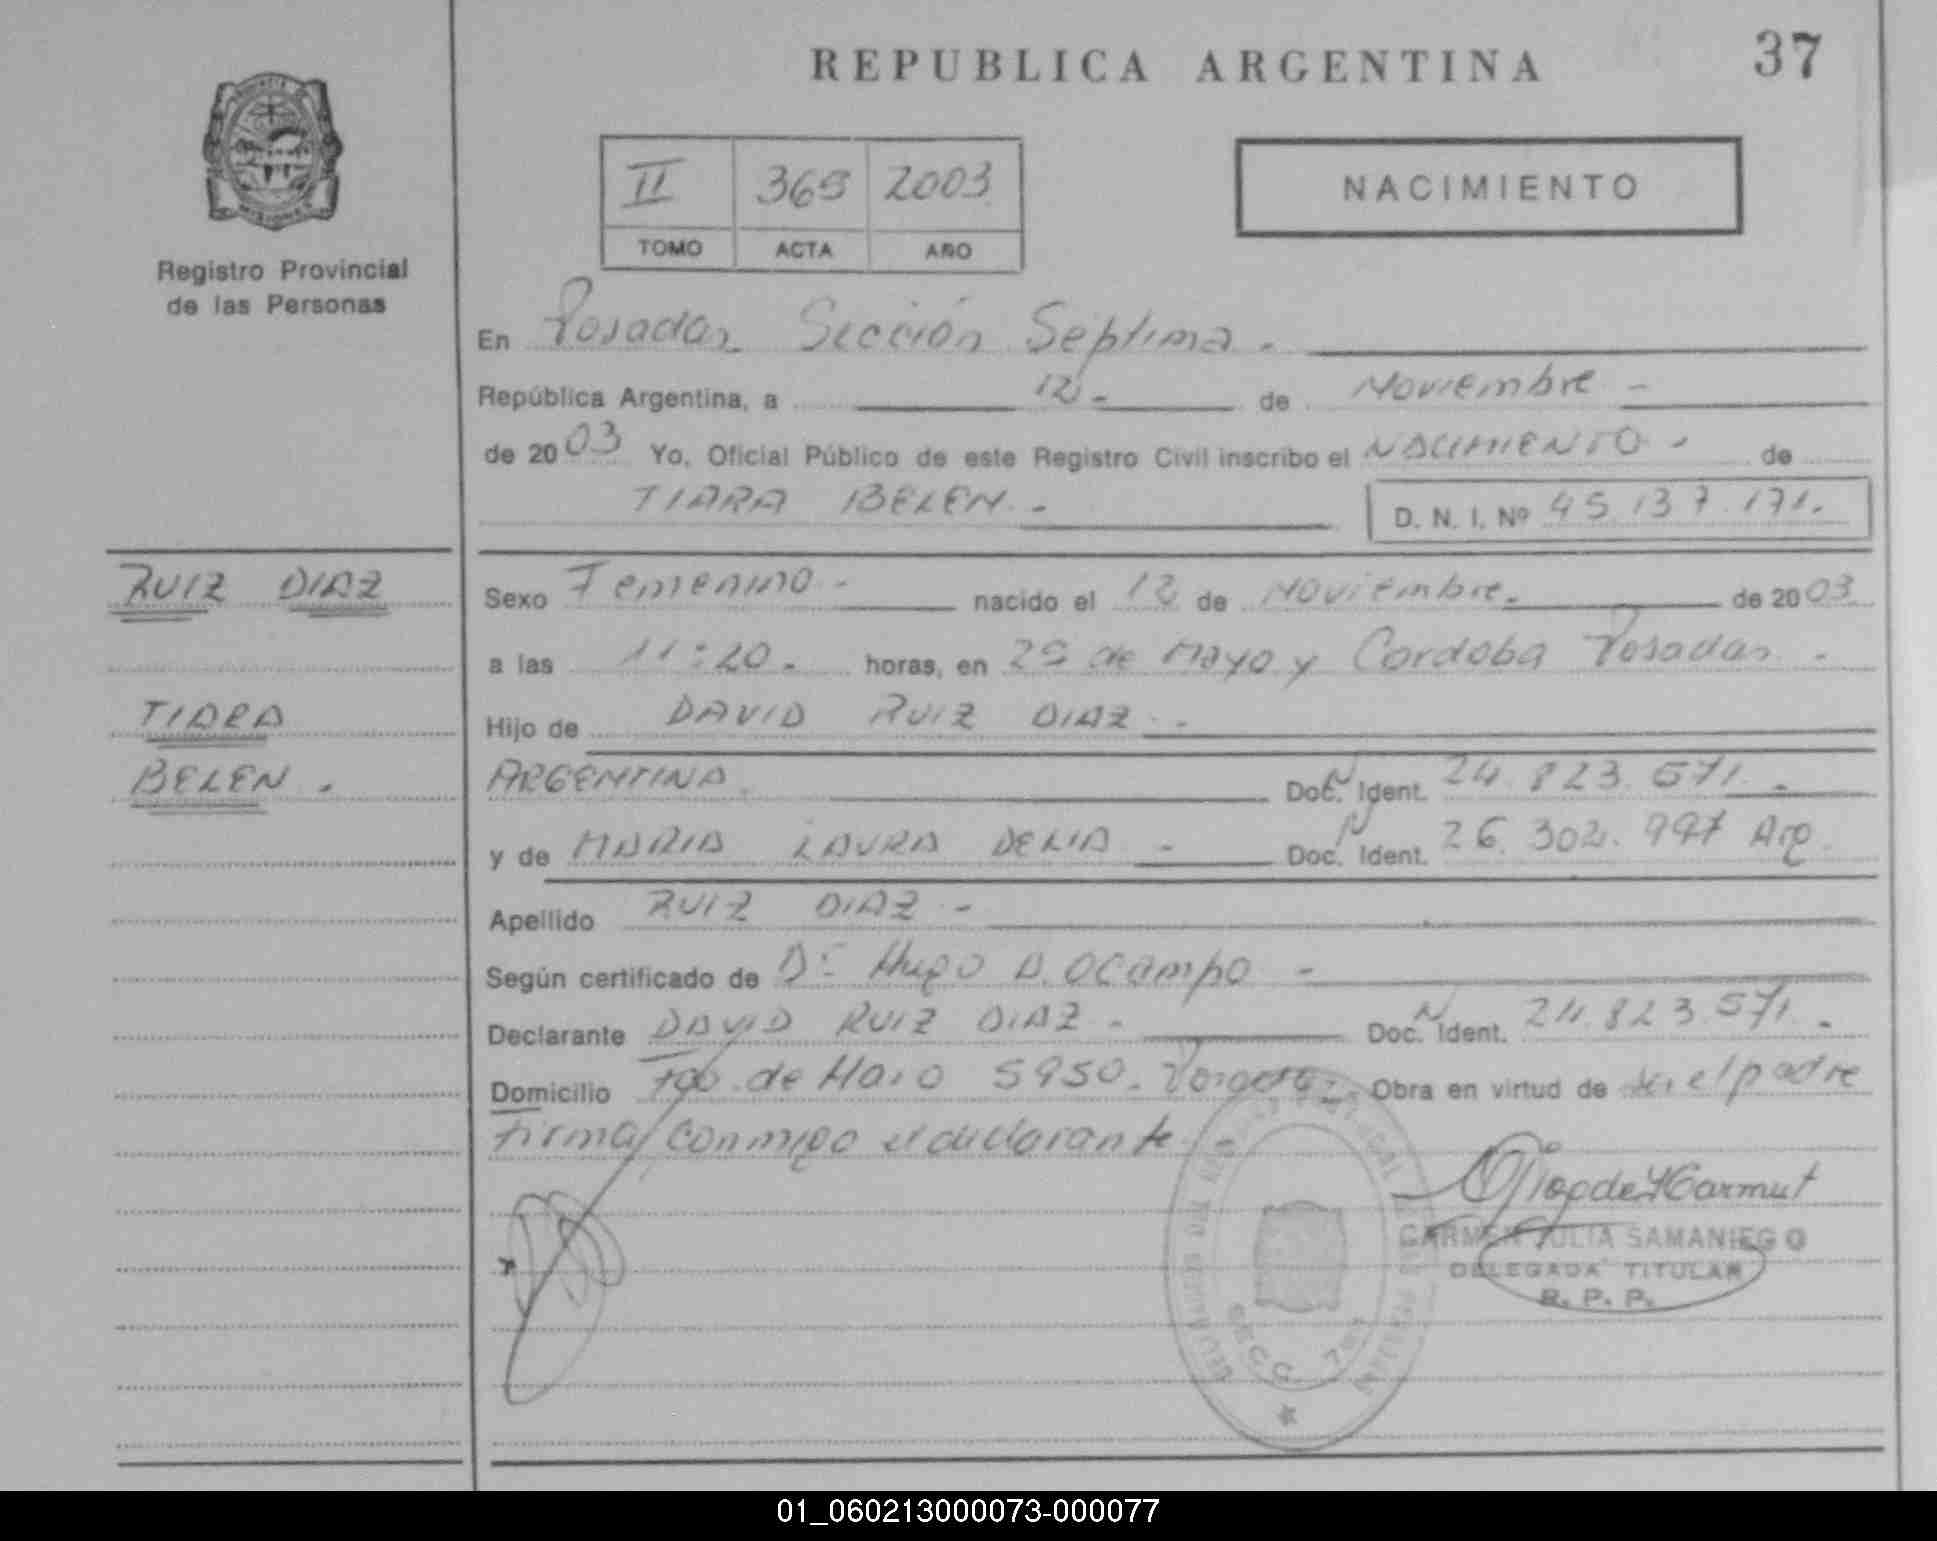 REPUBLICA ARGENTINA
37
Registro Provincial
de las Personas
II 369 2003
TOMO ACTA AÑO
NACIMIENTO
En Posadas Sección Séptima.
República Argentina, a 12 de Noviembre
de 2003 Yo, Oficial Público de este Registro Civil inscribo el NACIMIENTO de
TIARA BELEN
D. N. I. Nº 45.137.171.
RUIZ DIAZ
TIARA
BELEN.
Sexo Femenino nacido el 12 de Noviembre de 2003
a las 11:20 horas, en 25 de Mayo y Cordoba Posadas
Hijo de DAVID RUIZ DIAZ
ARGENTINA Doc. Ident. 24.823.571.
y de MARIA LAURA DELIA Doc. Ident. 26.302.997 Arg.
Apellido RUIZ DIAZ
Según certificado de Dr Hugo A. Ocampo
Declarante DAVID RUIZ DIAZ Doc. Ident. 24.823.571.
Domicilio de Haro 5950. Posadas Obra en virtud de ser el padre
Firma conmigo el declarante
CARMEN JULIA SAMANIEGO
DELEGADA TITULAR
R. P. P.
SECC. 7ma
01_060213000073-000077